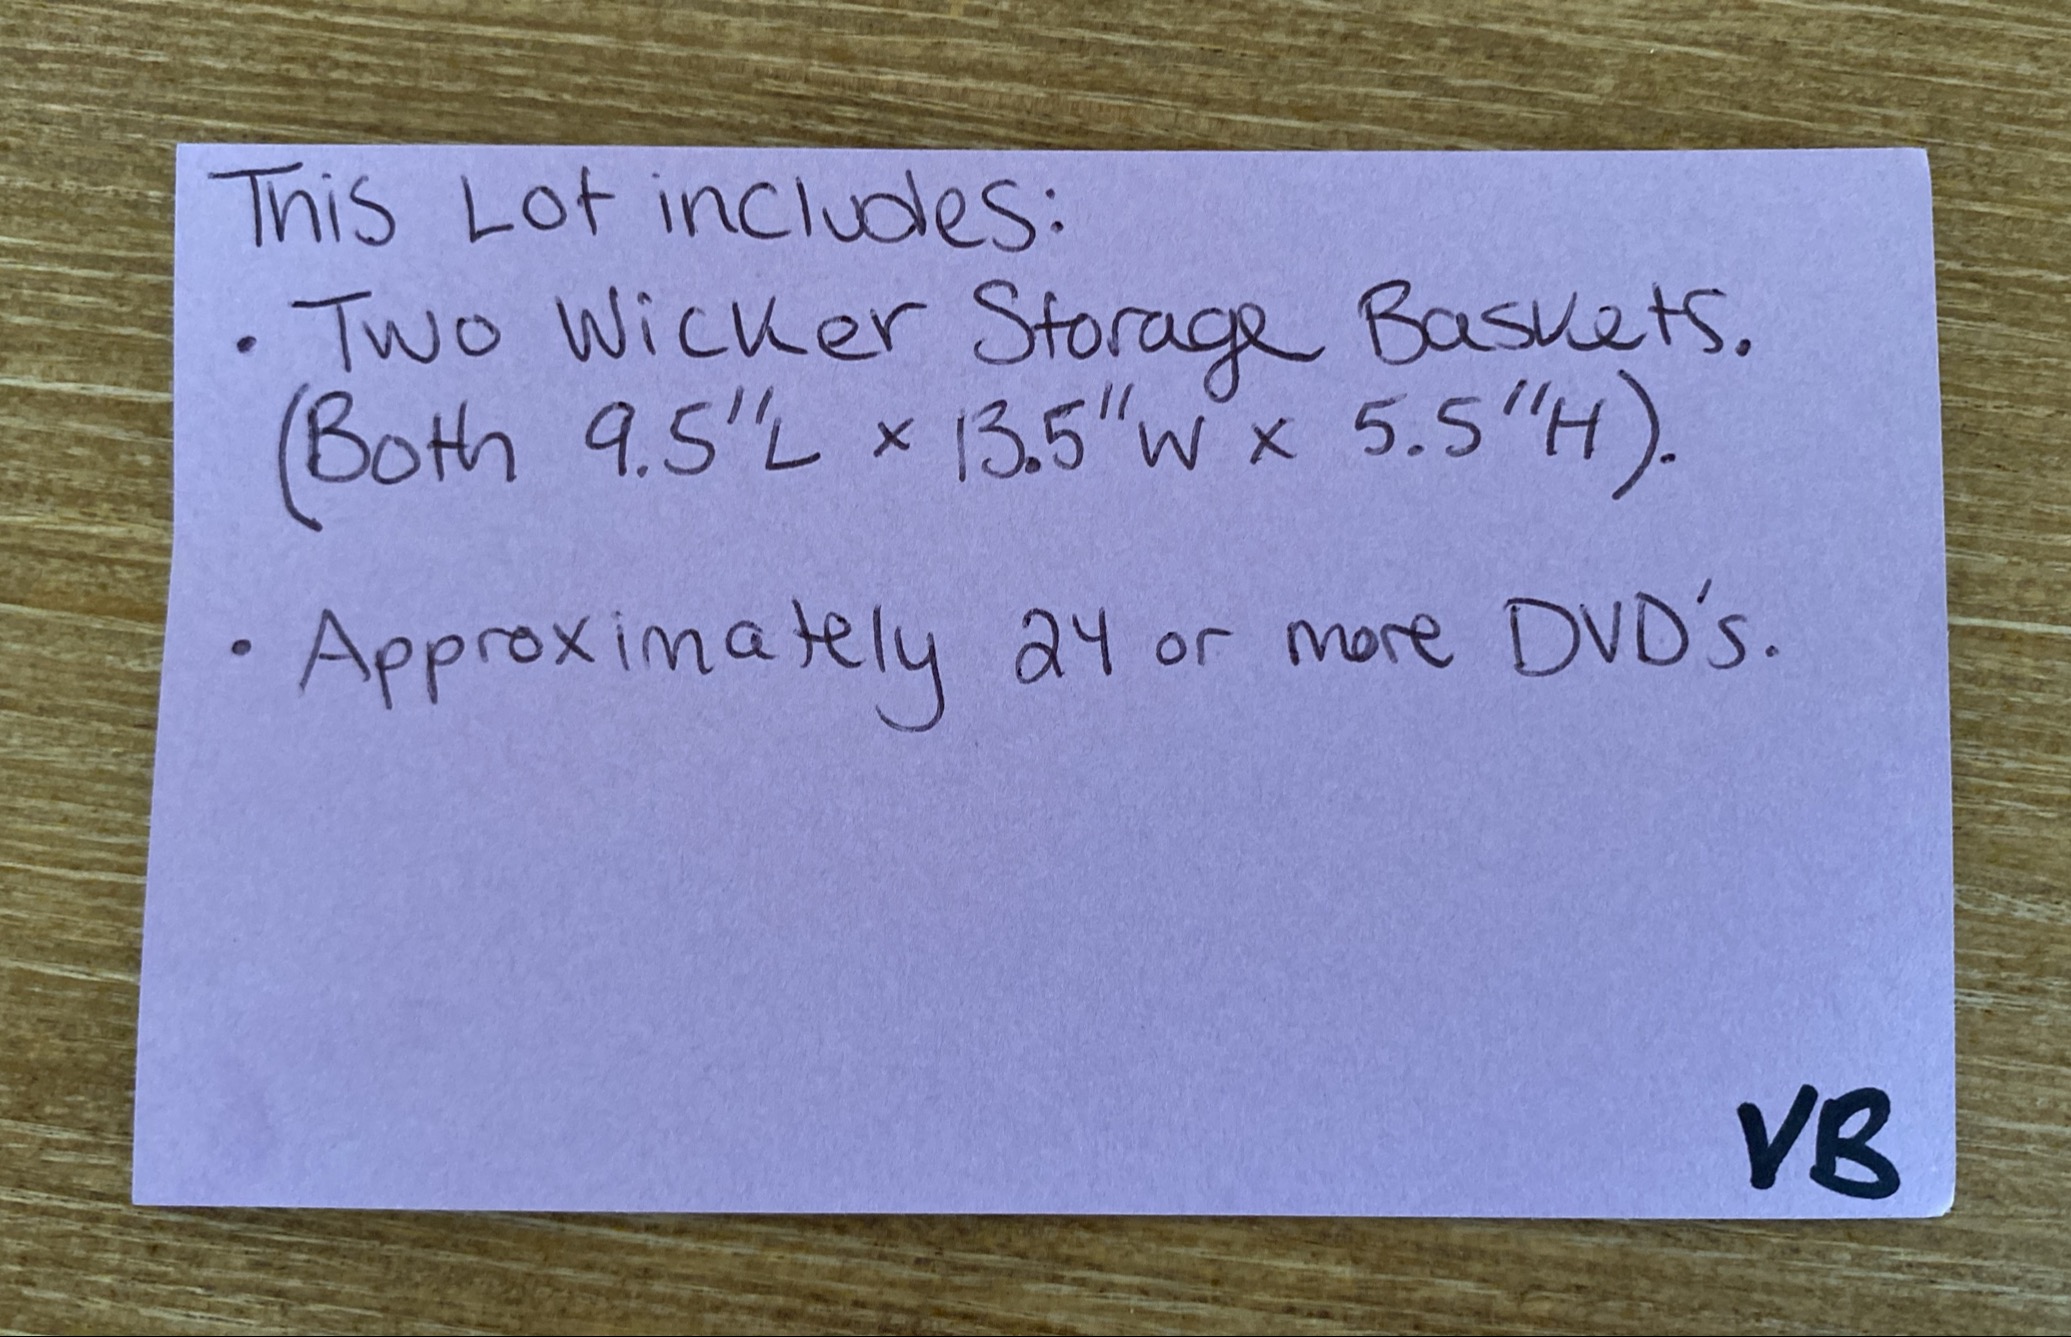 This Lot includes:
• Two Wicker Storage Baskets.
(Both 9.5"L x 13.5"W x 5.5"H).
• Approximately 24 or more DVD's.
VB